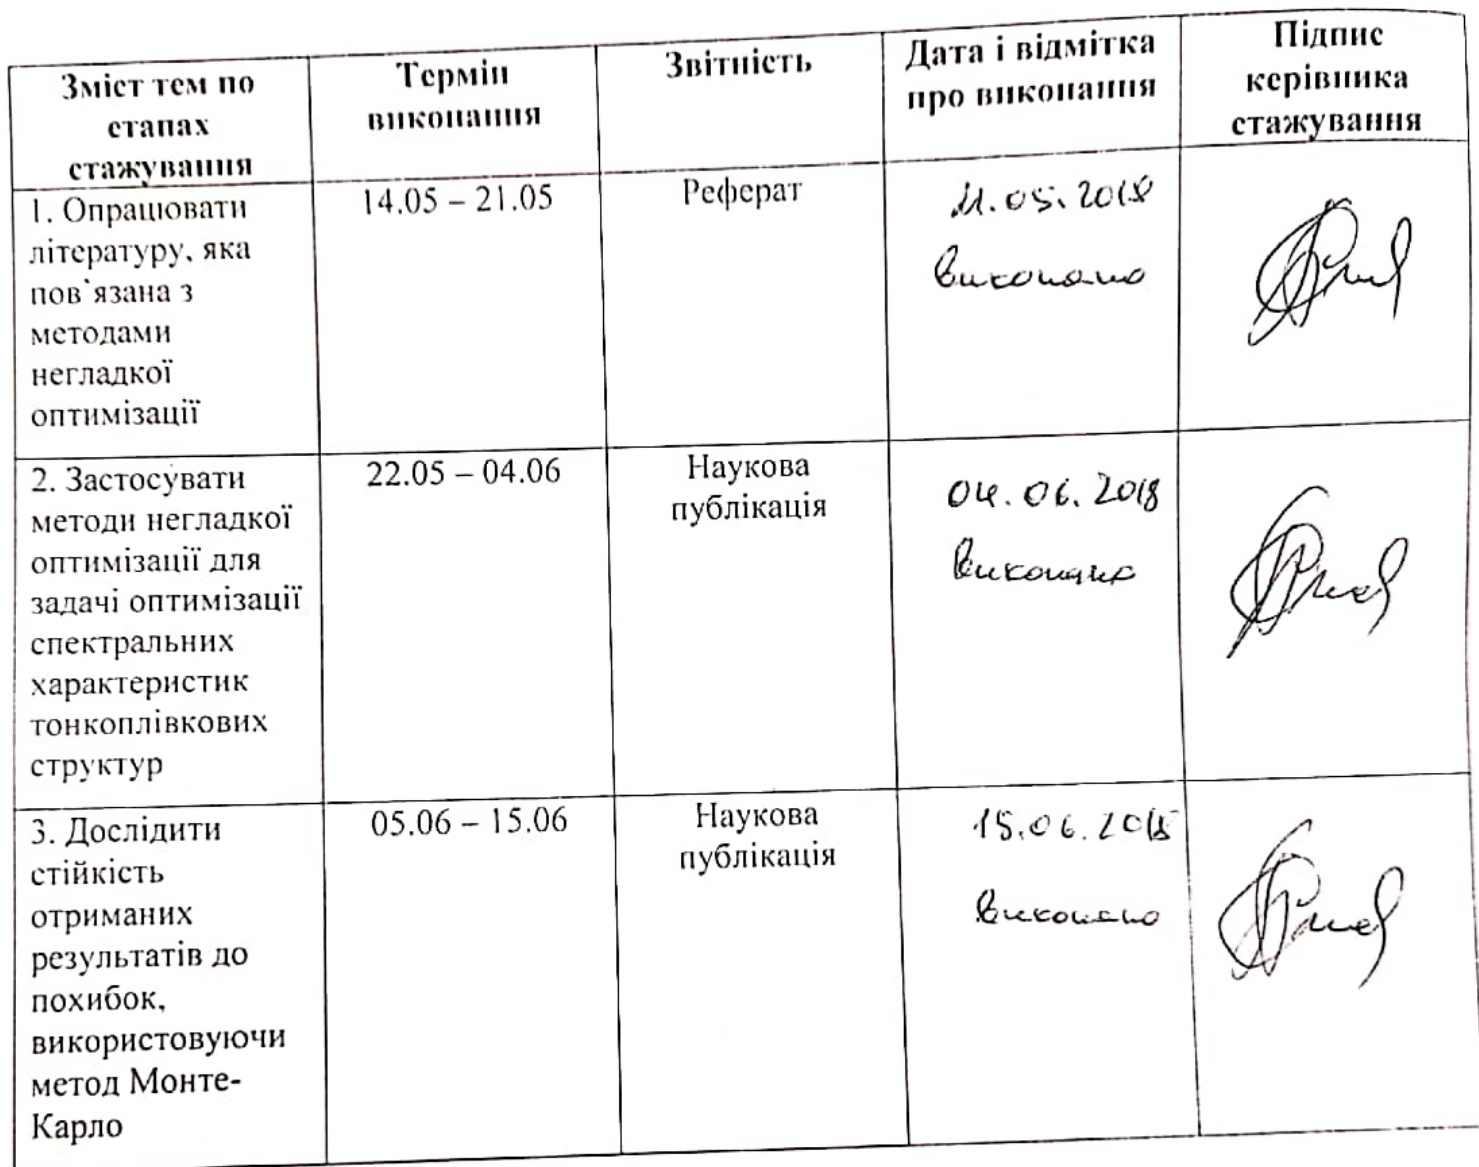 Зміст тем по
етапах
стажування
Термін
виконання
Звітність
Дата і відмітка
про виконання
Підпис
керівника
стажування
1. Опрацювати
літературу, яка
пов`язана з
методами
негладкої
оптимізації
14.05 – 21.05
Реферат
11.05.2018
Виконано
2. Застосувати
методи негладкої
оптимізації для
задачі оптимізації
спектральних
характеристик
тонкоплівкових
структур
22.05 – 04.06
Наукова
публікація
04.06.2018
Виконано
3. Дослідити
стійкість
отриманих
результатів до
похибок,
використовуючи
метод Монте-
Карло
05.06 – 15.06
Наукова
публікація
15.06.2018
Виконано